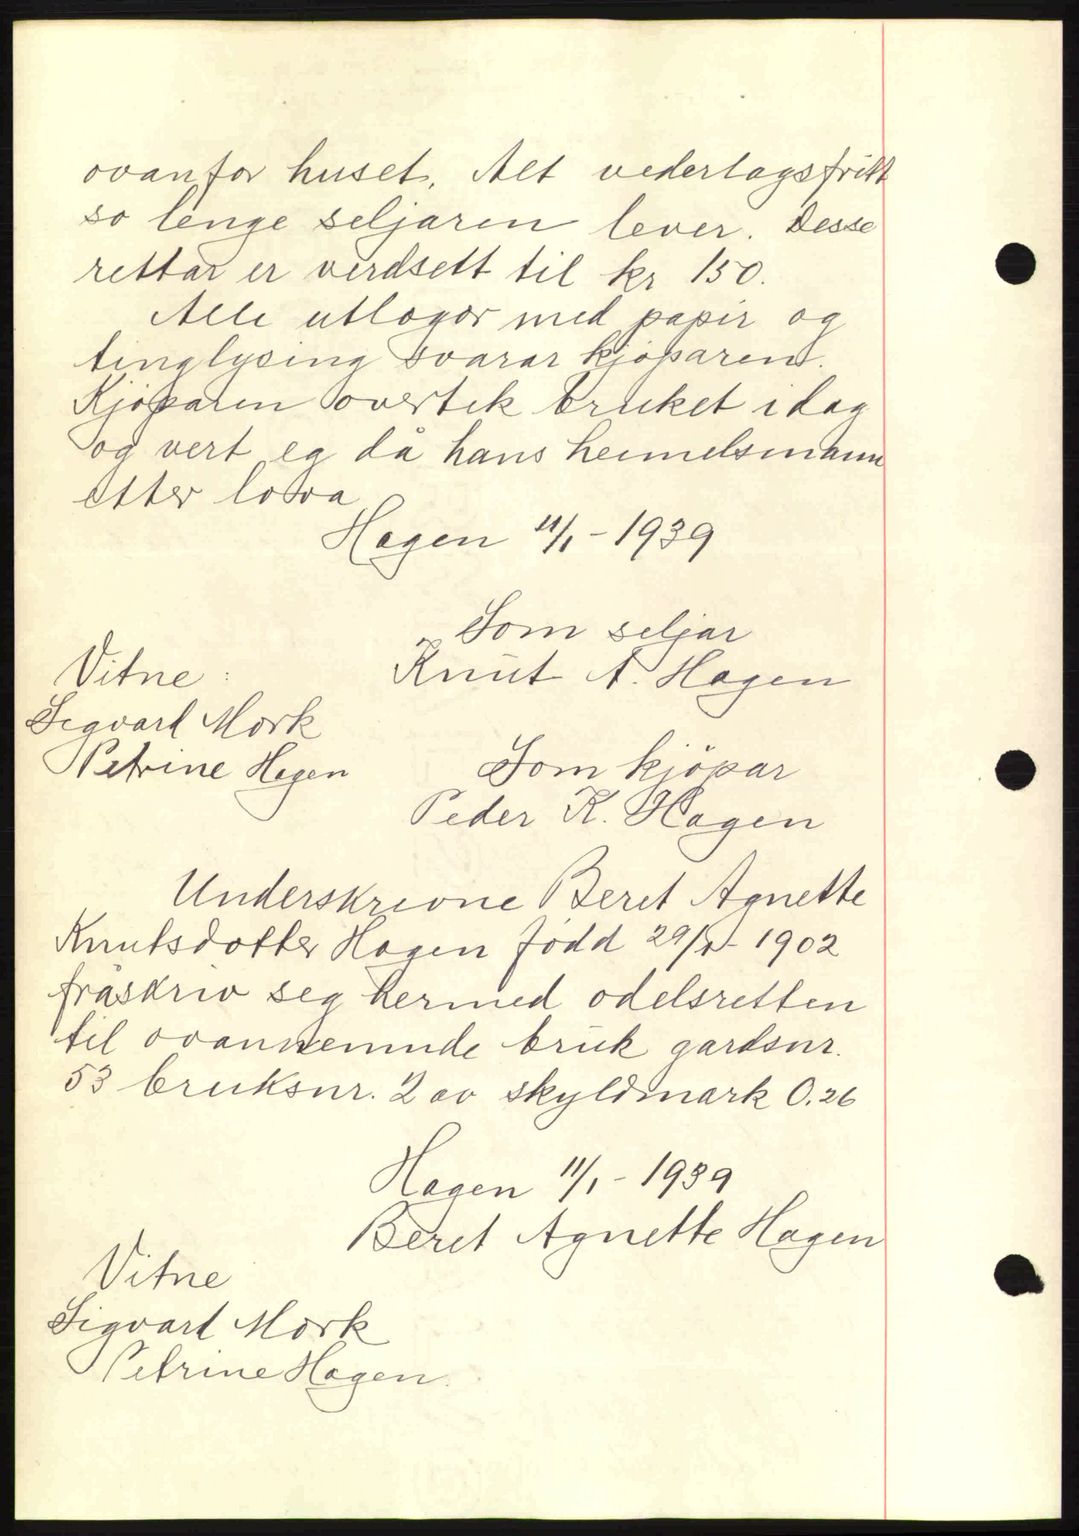 ovanfor huset. Alt vederlagsfritt
so lenge seljaren lever. Desse
rettar er verdsett til kr 150.
Alle utlogor med papir og
tinglysing svarar kjöparen.
Kjöparen overtek bruket idag
og vert eg då hans heimelsmann
etter lova
Hagen 11/1 - 1939
Som seljar
Vitne:
Knut A. Hagen
Sigvart Mork
Petrine Hagen
Som kjöpar
Peder K. Hagen
Underskrivne Beret Agnette
Knutsdotter Hagen född 29/ - 1902
fråskriv seg hermed odelsretten
til ovannemnde bruk gardsnr.
53 bruksnr. 2 av skyldmark 0.26
Hagen 11/1 - 1939
Beret Agnette Hagen
Vitne
Sigvart Mork
Petrine Hagen.